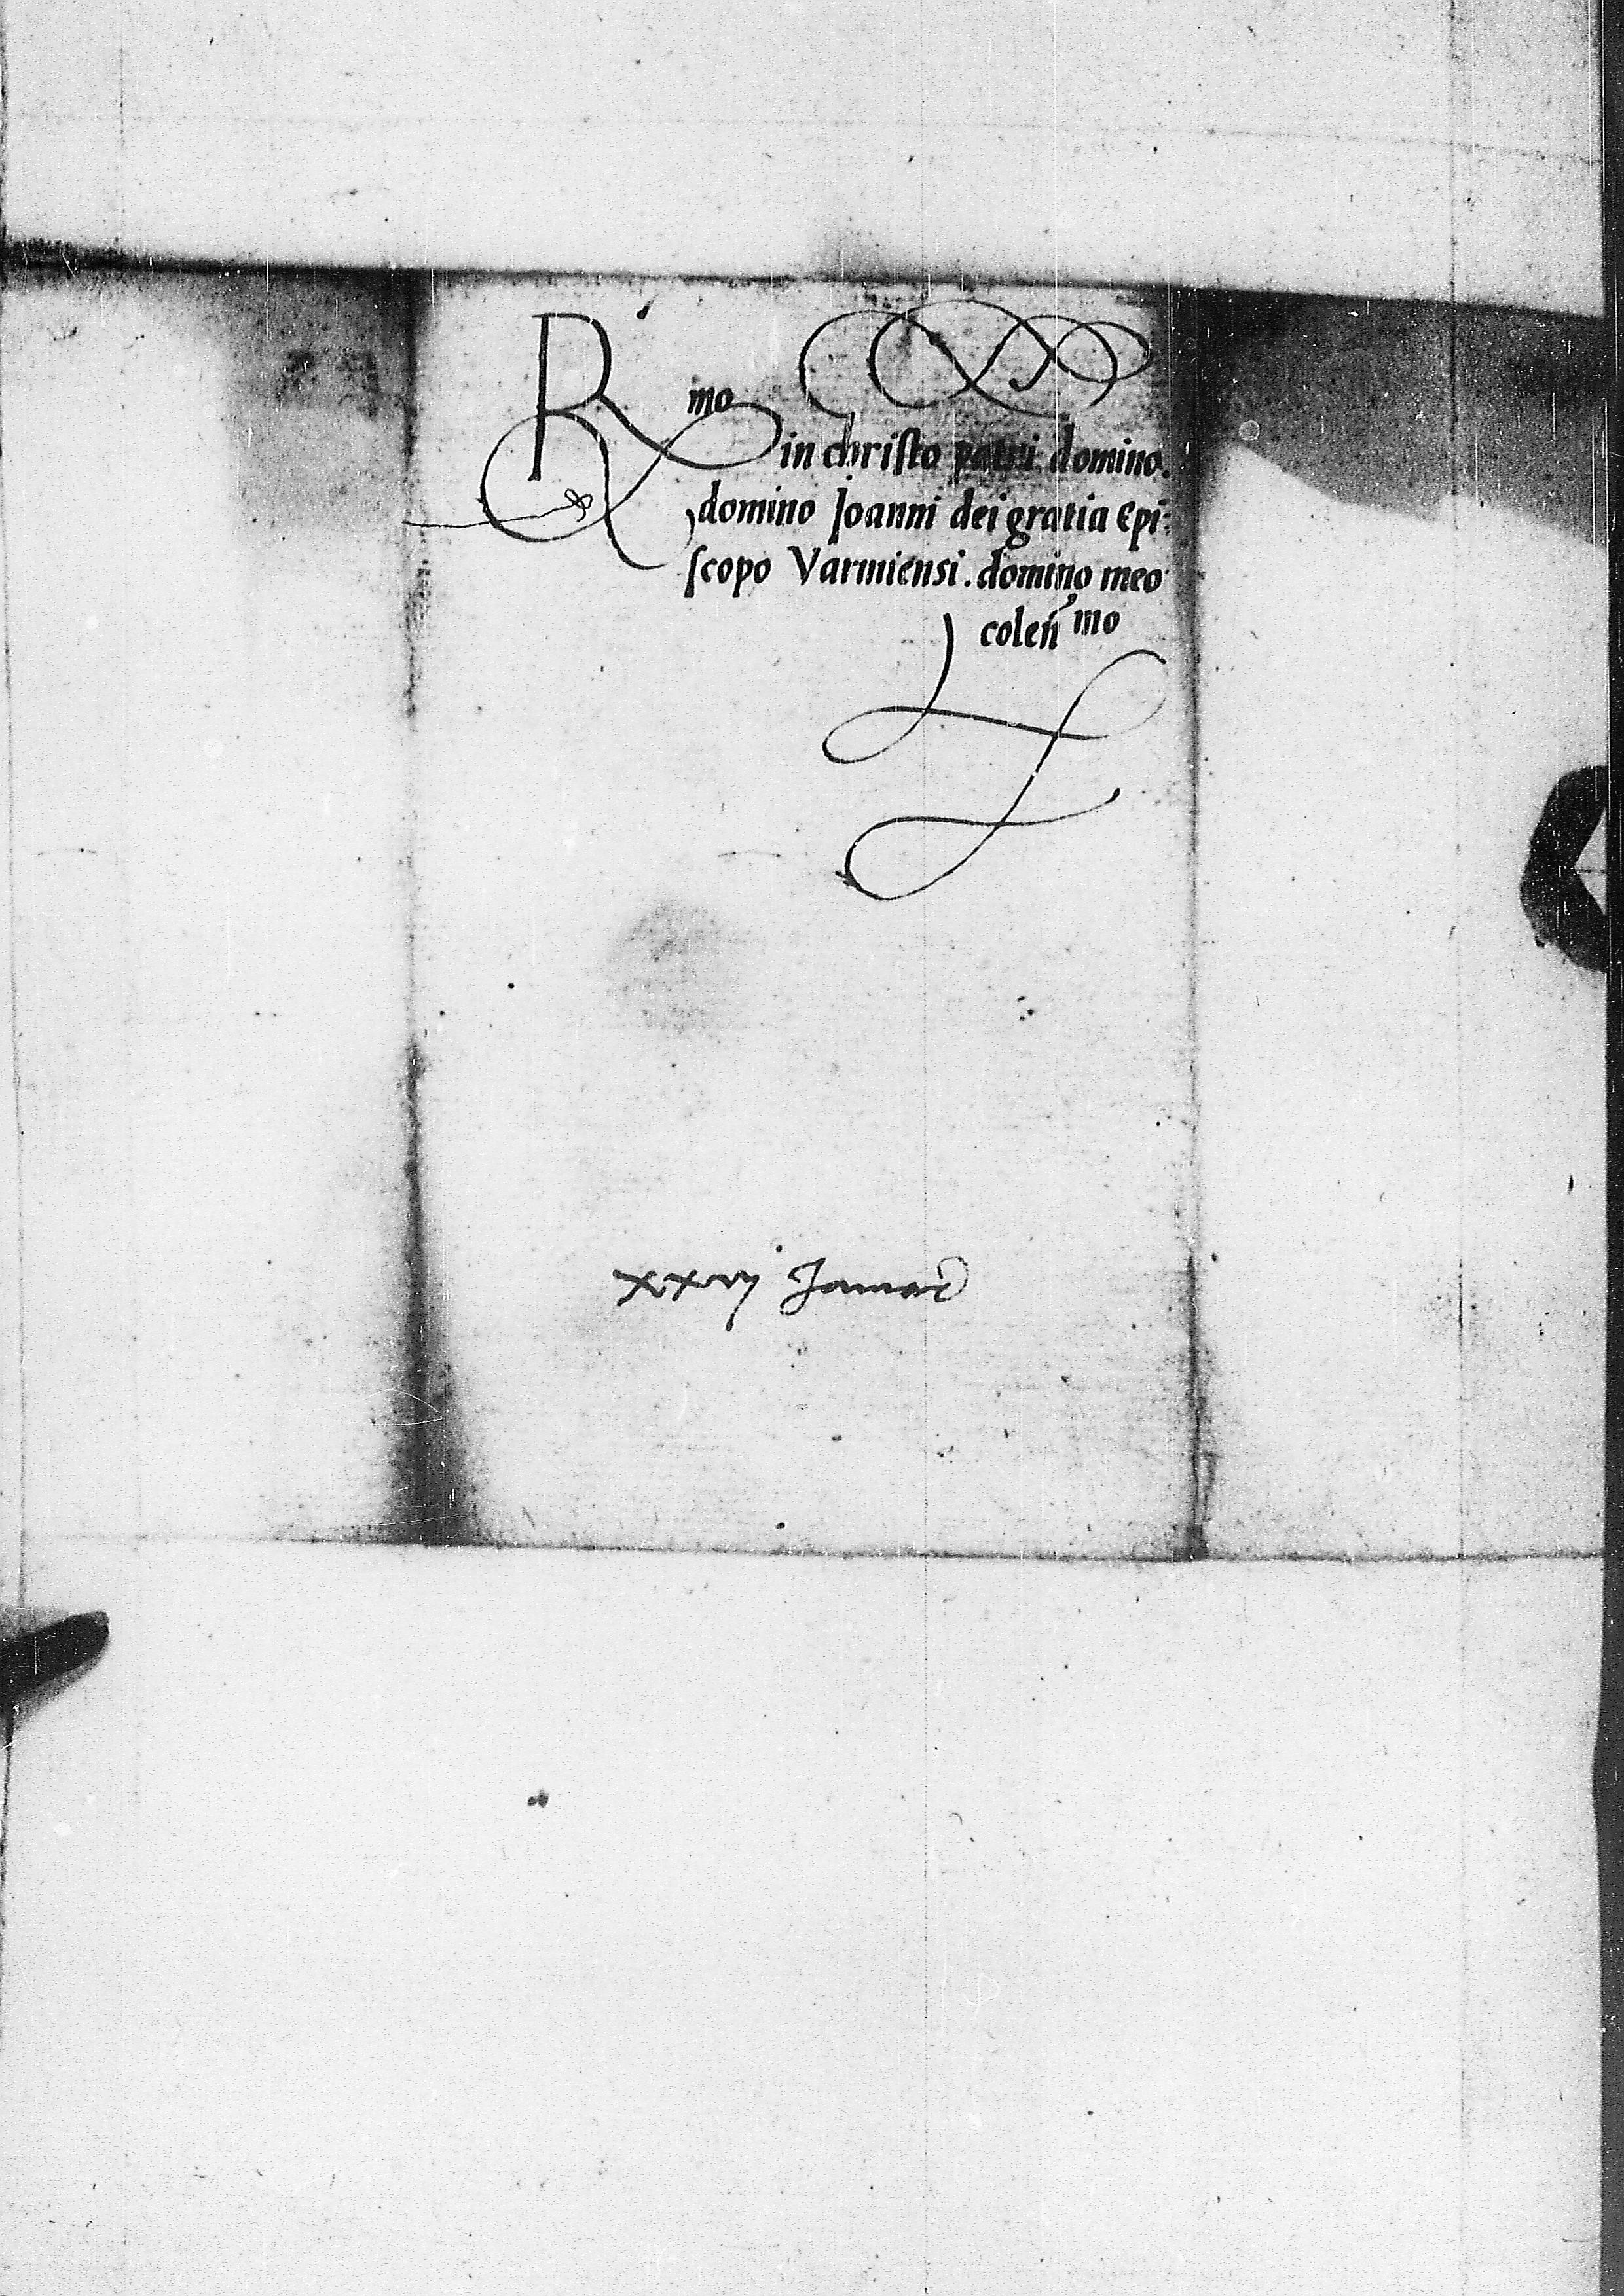 R mo
in christo patri domino.
domino Joanni dei gratia Epi:
scopo Varmiensi. domino meo
colen̄ mo
xxvj Januar